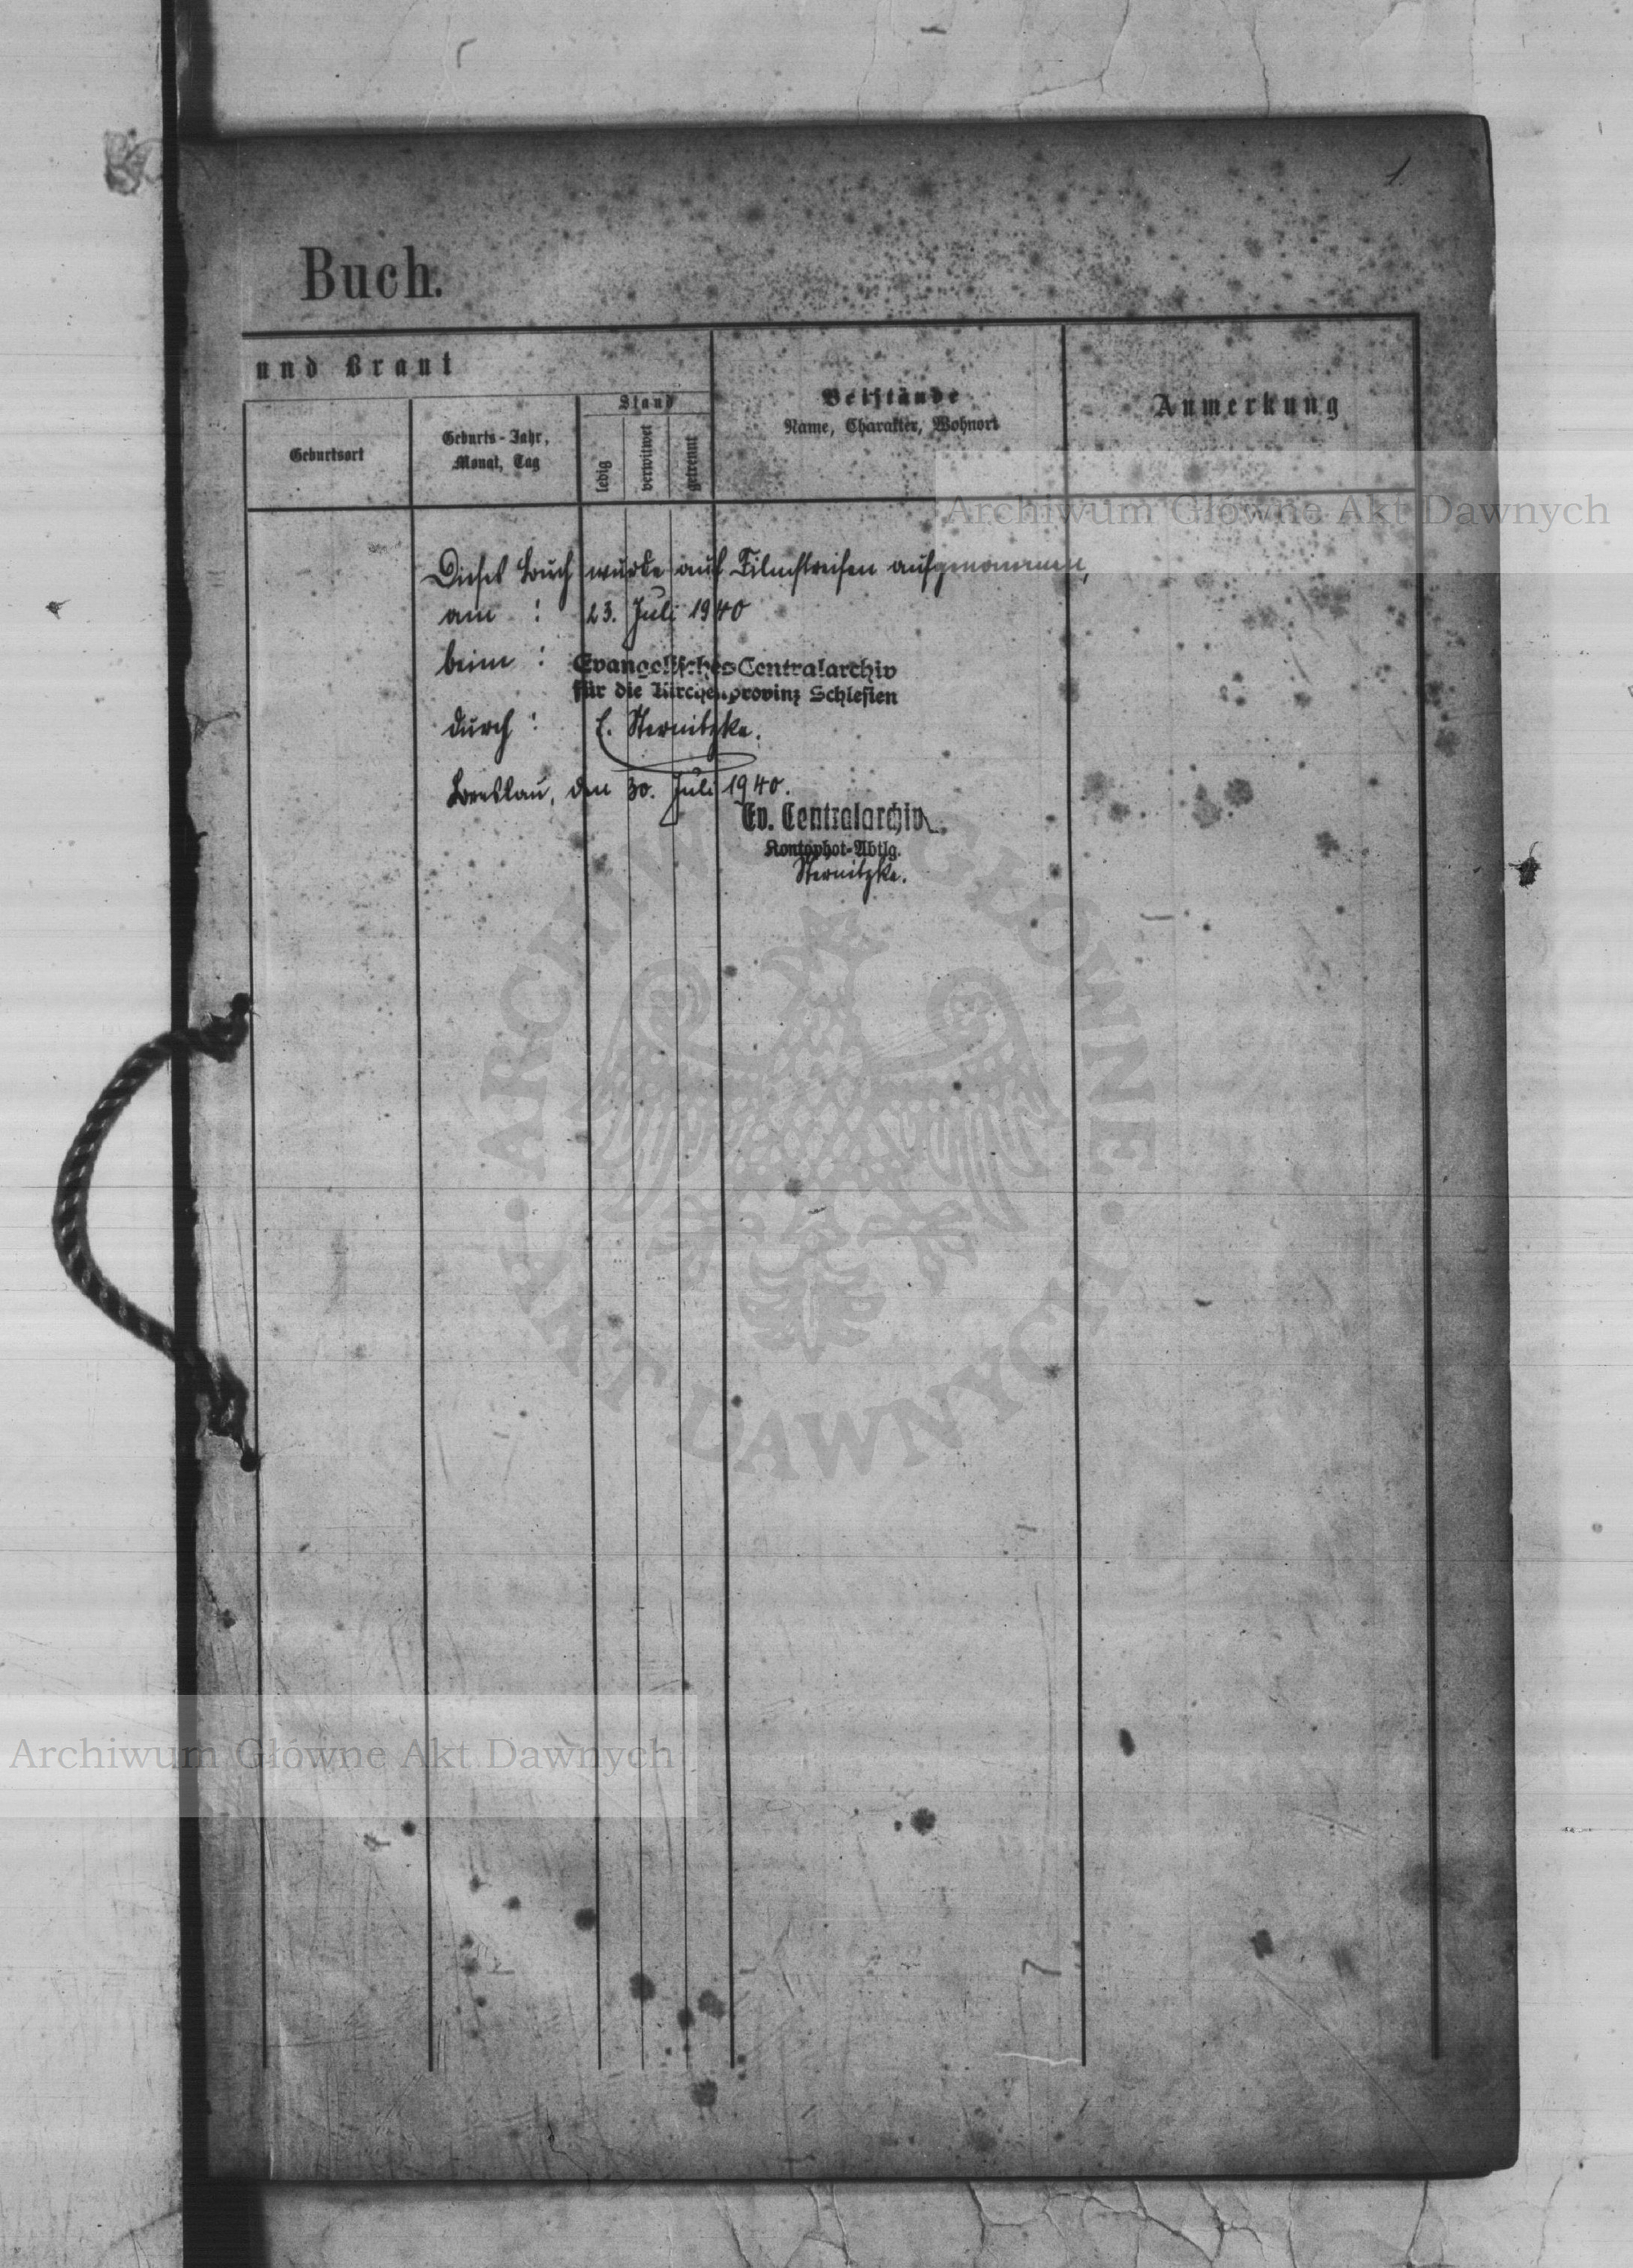 1.
Buch.
und Braut
Geburtsort
Geburts-Jahr,
Monat, Tag
Stand
ledig
verwitwet
getrennt
Beistände
Name, Charakter, Wohnort
Anmerkung
Archiwum Główne Akt Dawnych
Dieses Buch wurde auf Filmstreifen aufgenommen,
am : 23. Juli 1940
beim : Evangelisches Centralarchiv
für die Kirchenprovinz Schlesien
durch : E. Sternitzke.
Breslau, den 30. Juli 1940.
Ev. Centralarchiv
Kontophot-Abtlg.
Sternitzke.
ARCHIWUM GŁÓWNE
AKT DAWNYCH
Archiwum Główne Akt Dawnych
7